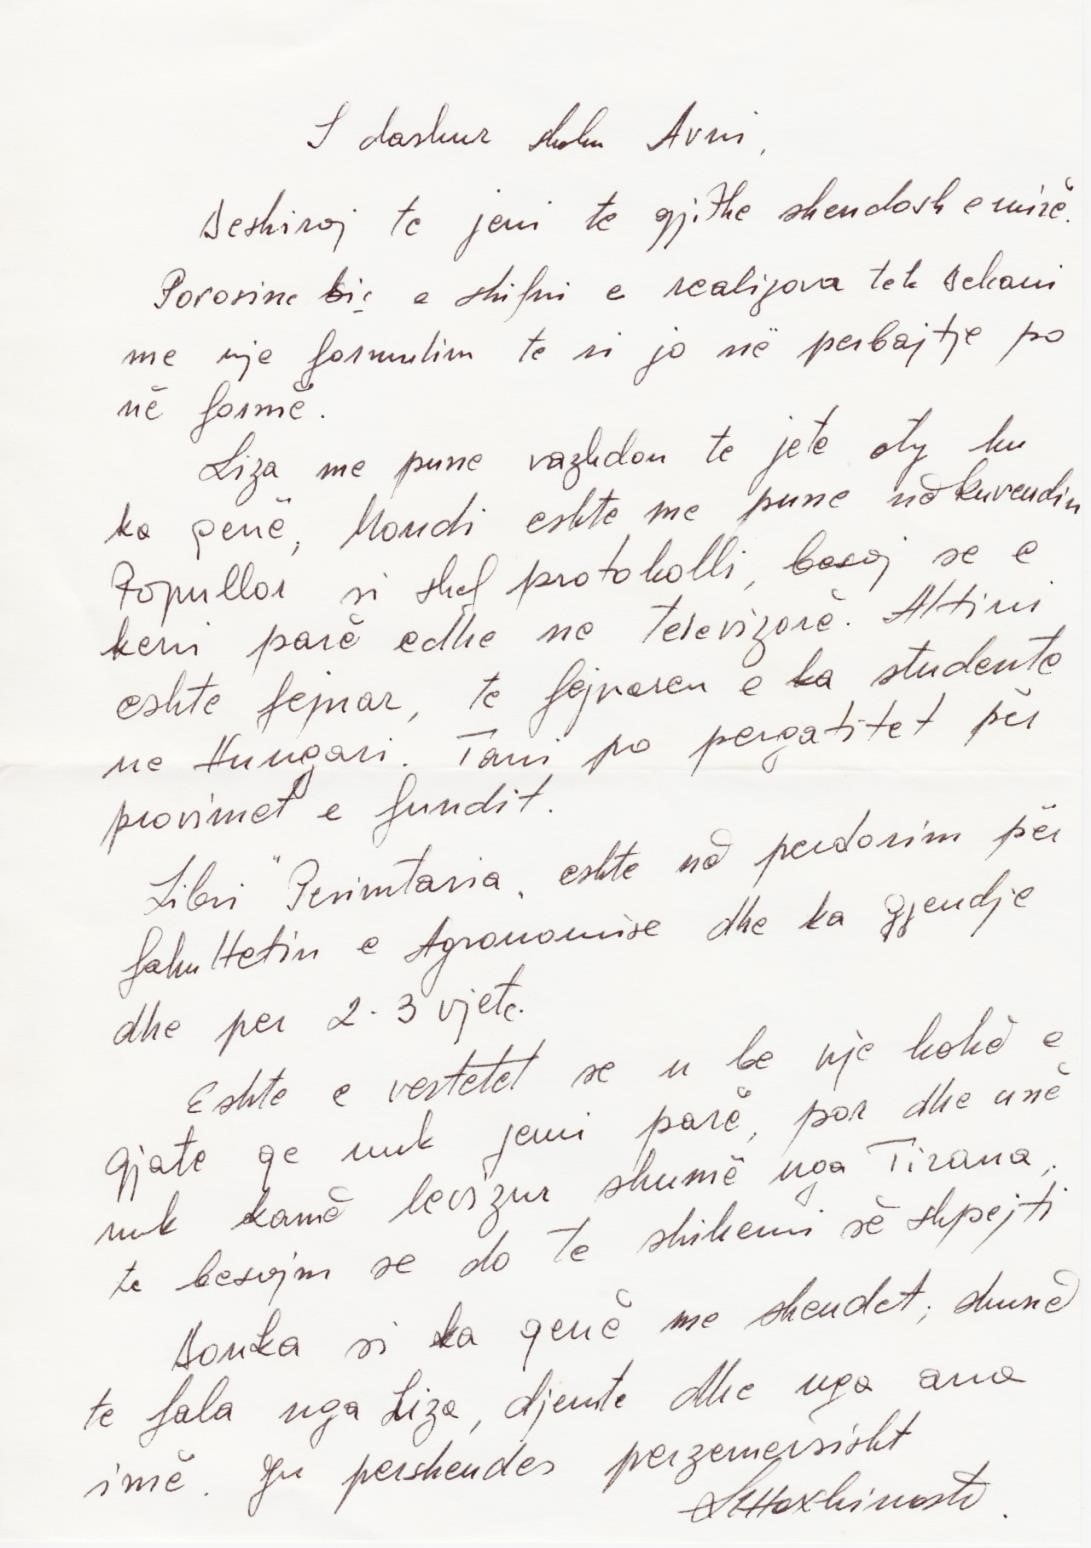 I dashur shoku Avni,
Deshiroj te jeni te gjithe shendosh e mirë.
Porosine siç e shifni e realizova tek Dekani
me nje formulim te ri jo në perbajtje po
në formë.
Liza me pune vazhdon te jete aty ku
ka qenë, Mondi eshte me pune në kuvendin
Popullor si shef protokolli, besoj se e
keni parë edhe ne televizorë. Altini
eshte fejuar, te fejuaren e ka studente
ne Hungari. Tani po pergatitet për
provimet e fundit.
Libri "Perimtaria" eshte në perdorim për
fakultetin e Agronomise dhe ka gjendje
dhe per 2-3 vjete.
Eshte e vertetet se u be nje kohë e
gjate qe nuk jemi parë, por dhe unë
nuk kamë levizur shumë nga Tirana,
te besojm se do te shikemi së shpejti
Donka si ka qenë me shendet, shumë
te fala nga Liza, djemte dhe nga ana
imë. Ju pershendes perzemersisht